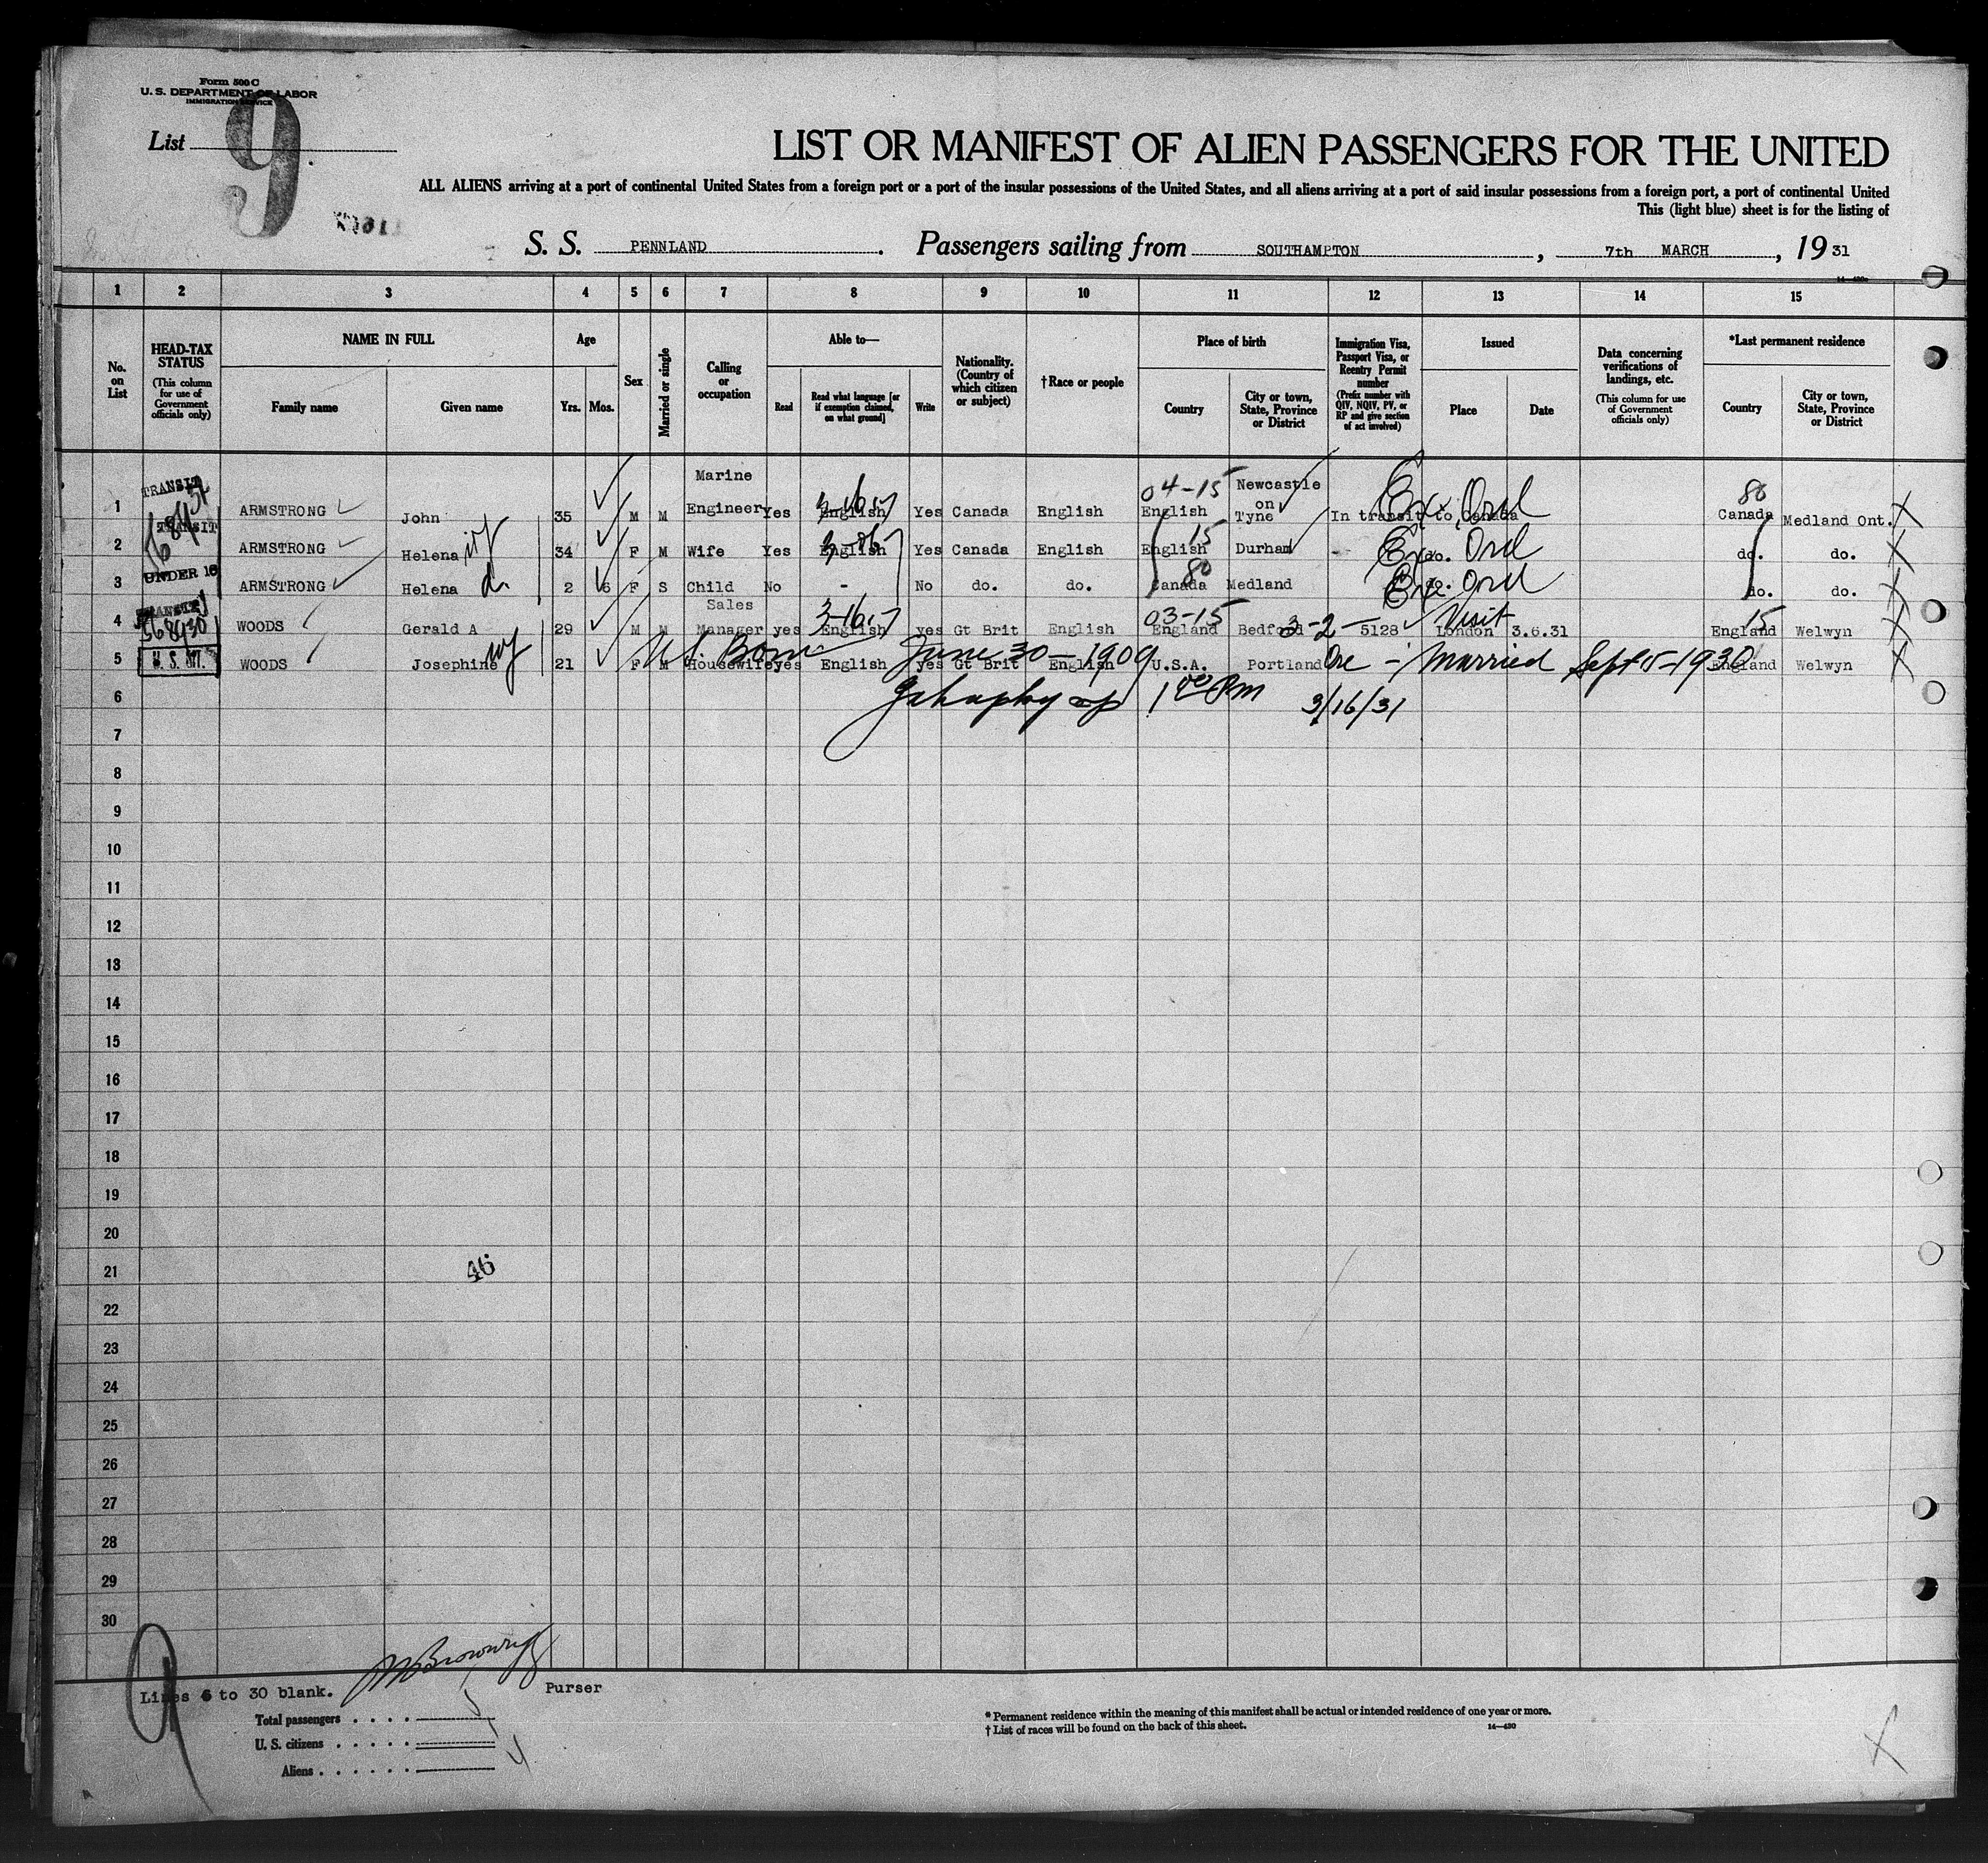 Form 500 C
U. S. DEPARTMENT OF LABOR
IMMIGRATION SERVICE
List 9
LIST OR MANIFEST OF ALIEN PASSENGERS FOR THE UNITED
ALL ALIENS arriving at a port of continental United States from a foreign port or a port of the insular possessions of the United States, and all aliens arriving at a port of said insular possessions from a foreign port, a port of continental United
This (light blue) sheet is for the listing of
S. S. PENNLAND. Passengers sailing from SOUTHAMPTON, 7th MARCH, 19 31
1 2 3 4 5 6 7 8 9 10 11 12 13 14 15
No. on List
HEAD-TAX STATUS (This column for use of Government officials only)
NAME IN FULL
Family name Given name
Age
Yrs. Mos.
Sex
Married or single
Calling or occupation
Able to—
Read
Read what language [or if exemption claimed, on what ground]
Write
Nationality. (Country of which citizen or subject)
†Race or people
Place of birth
Country
City or town, State, Province or District
Immigration Visa, Passport Visa, or Reentry Permit number (Prefix number with QIV, NQIV, PV, or RP and give section of act involved)
Issued
Place Date
Data concerning verifications of landings, etc. (This column for use of Government officials only)
*Last permanent residence
Country
City or town, State, Province or District
1 TRANSIT ARMSTRONG John 35 M M Marine Engineer Yes English 3-16- Yes Canada English 04-15 English Newcastle on Tyne In transit to Canada 80 Canada Medland Ont.
2 TRANSIT ARMSTRONG Helena 34 F M Wife Yes English Yes Canada English 15 English Durham do. do. do.
3 UNDER 16 ARMSTRONG Helena d. 2 6 F S Child No - No do. do. 80 Canada Medland do. do. do.
4 TRANSIT 568430 WOODS Gerald A 29 M M Sales Manager yes English 3-16- yes Gt Brit English 03-15 England Bedford 3-2- 5128 Visit London 3.6.31 15 England Welwyn
5 U. S. CIT. WOODS Josephine wf 21 F M Housewife yes English yes Gt Brit English U.S.A. Portland Ore England Welwyn
US Born June 30-1909 - Married Sept 15-1930
6 1 00 Pm 3/16/31
7
8
9
10
11
12
13
14
15
16
17
18
19
20
21 46
22
23
24
25
26
27
28
29
30
9
Lines 6 to 30 blank. Purser
Total passengers
U. S. citizens
Aliens
* Permanent residence within the meaning of this manifest shall be actual or intended residence of one year or more.
† List of races will be found on the back of this sheet. 14—430